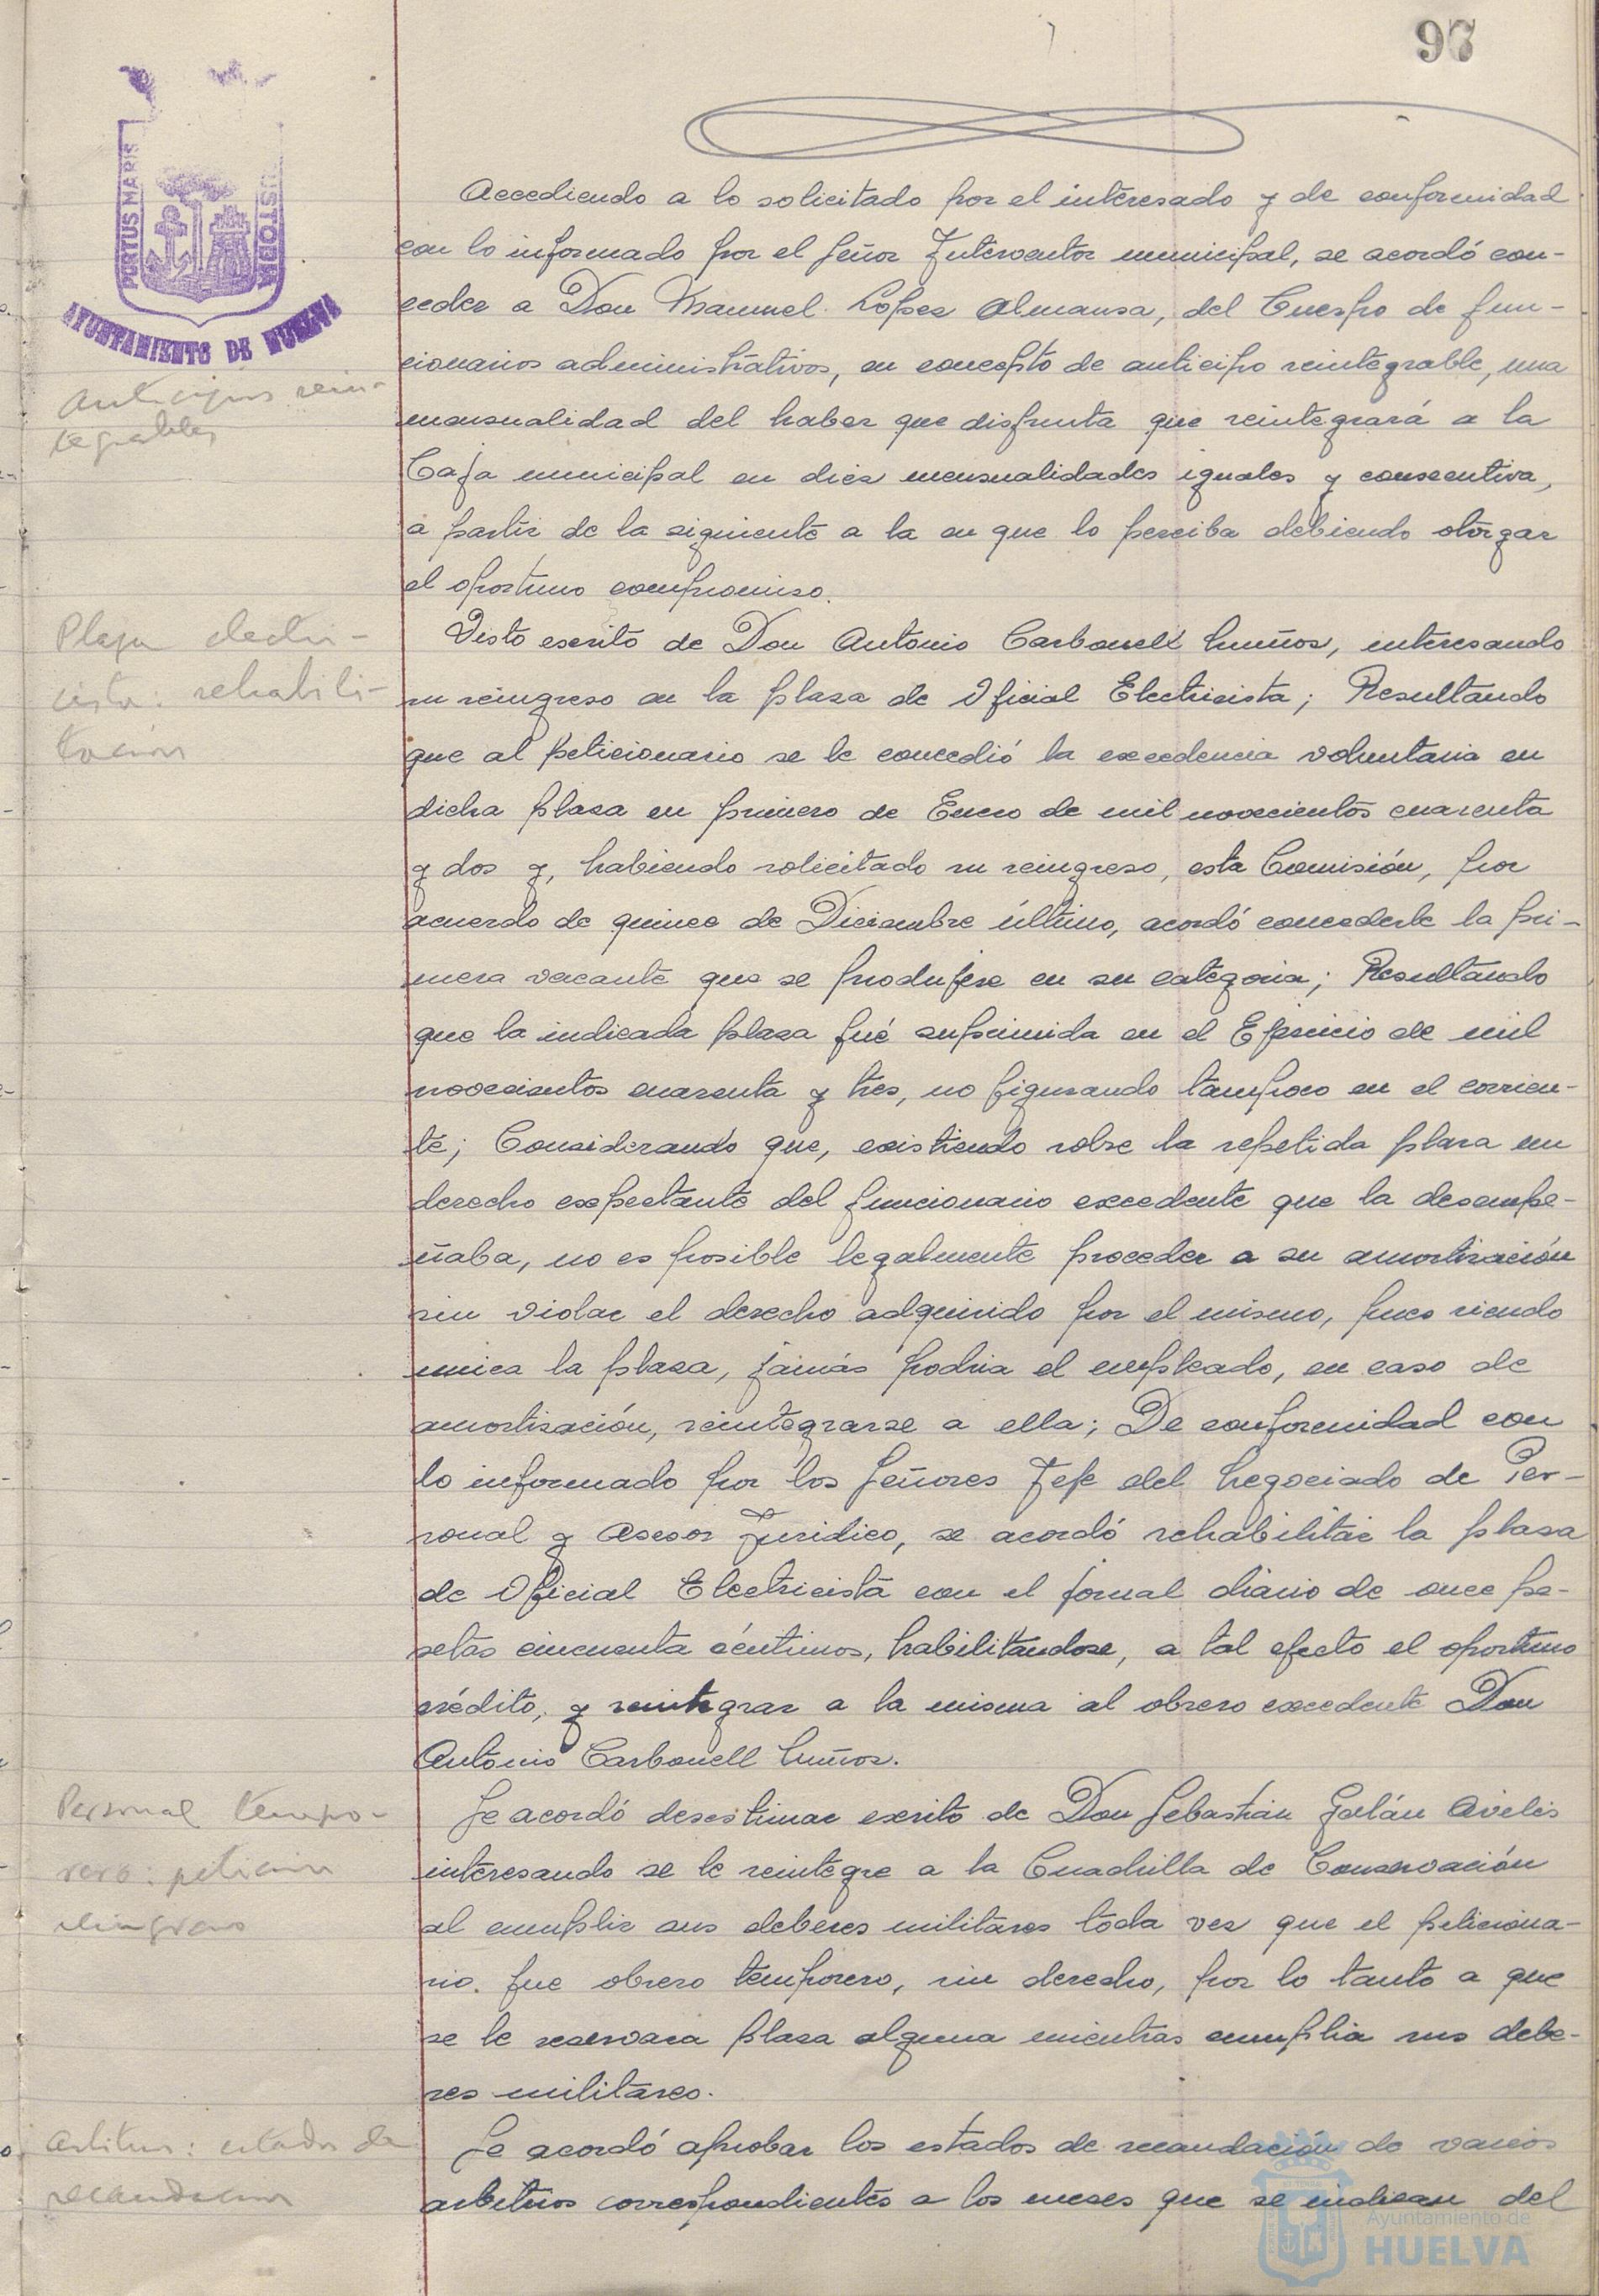 97
PORTUS MARIS
CUSTODIA
AYUNTAMIENTO DE HUELVA
Accediendo a lo solicitado por el interesado y de conformidad
con lo informado por el Señor Interventor municipal, se acordó con-
ceder a Don Manuel López Almansa, del Cuerpo de fun-
cionarios administrativos, en concepto de anticipo reintegrable, una
Anticipos rein-
tegrables
mensualidad del haber que disfruta que reintegrará a la
Caja municipal en diez mensualidades iguales y consecutiva,
a partir de la siguiente a la en que lo perciba debiendo otorgar
el oportuno compromiso.
Plaza electri-
cista: rehabili-
tación
Visto escrito de Don Antonio Carbonell Muñoz, interesando
su reingreso en la plaza de Oficial Electricista; Resultando
que al peticionario se le concedió la excedencia voluntaria en
dicha plaza en primero de Enero de mil novecientos cuarenta
y dos y, habiendo solicitado su reingreso, esta Comisión, por
acuerdo de quince de Diciembre último, acordó concederle la pri-
mera vacante que se produjese en su categoria; Resultando
que la indicada plaza fué suprimida en el Ejercicio de mil
novecientos cuarenta y tres, no figurando tampoco en el corrien-
te; Considerando que, existiendo sobre la repetida plaza un
derecho expectante del funcionario excedente que la desempe-
ñaba, no es posible legalmente proceder a su amortización
sin violar el derecho adquirido por el mismo, pues siendo
unica la plaza, jamás podria el empleado, en caso de
amortización, reintegrarse a ella; De conformidad con
lo informado por los Señores Jefe del Negociado de Per-
sonal y Asesor Juridico, se acordó rehabilitar la plaza
de Oficial Electricista con el jornal diario de once pe-
setas cincuenta céntimos, habilitandose, a tal efecto el oportuno
crédito, y reintegrar a la misma al obrero excedente Don
Antonio Carbonell Muñoz.
Personal tempo-
rero: petición
reingreso
Se acordó desestimar escrito de Don Sebastián Galán Avilés
interesando se le reintegre a la Cuadrilla de Conservación
al cumplir sus deberes militares toda vez que el peticiona-
rio. fue obrero temporero, sin derecho, por lo tanto a que
se le reservara plaza alguna mientras cumplia sus debe-
res militares.
Arbitrios: estados de
recaudacion
Se acordó aprobar los estados de recaudación de varios
arbitrios correspondientes a los meses que se indican del
Ayuntamiento de
HUELVA